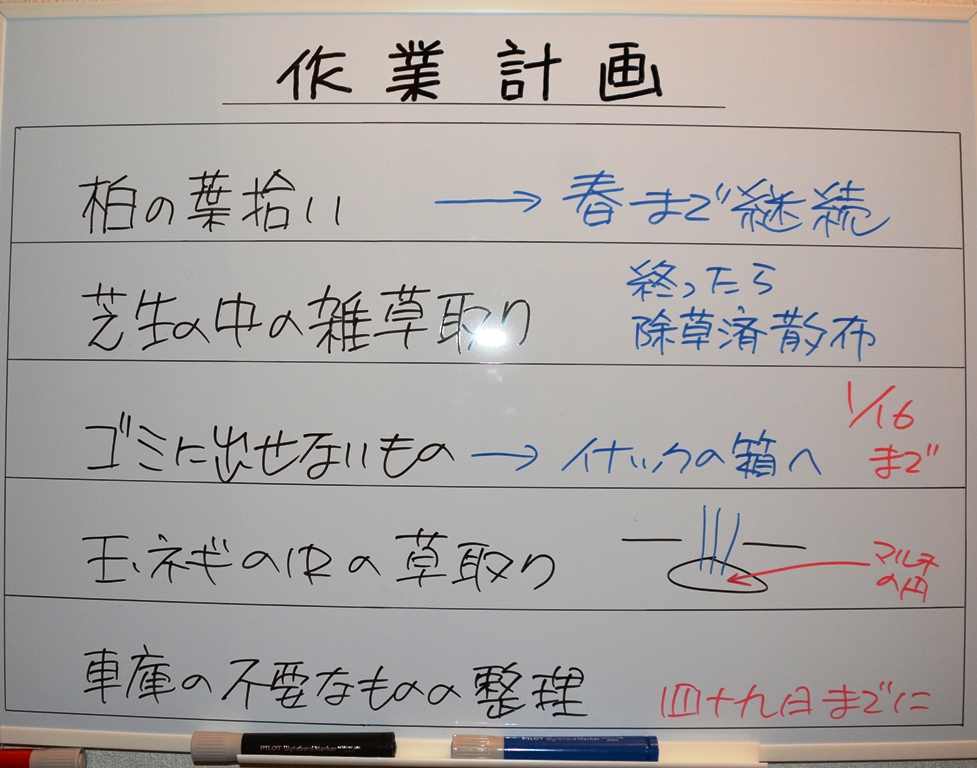 作業計画
柏の葉拾い → 春まで継続
芝生の中の雑草取り
終ったら
除草済散布
ゴミに出せないもの → イナックの箱へ
1/16
まで
玉ネギの中の草取り
マルチ
の円
車庫の不要なものの整理 四十九日までに
PILOT WyteboardMarker
PILOT WyteboardMarker